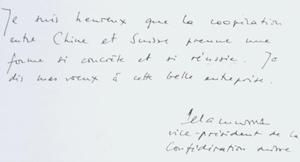 Je suis heureux que la coopération
entre Chine et Suisse prenne une
forme si concrète et si réussie. Je
dis mes voeux à cette belle entreprise.
Delamuraz
vice-président de la
Confédération suisse